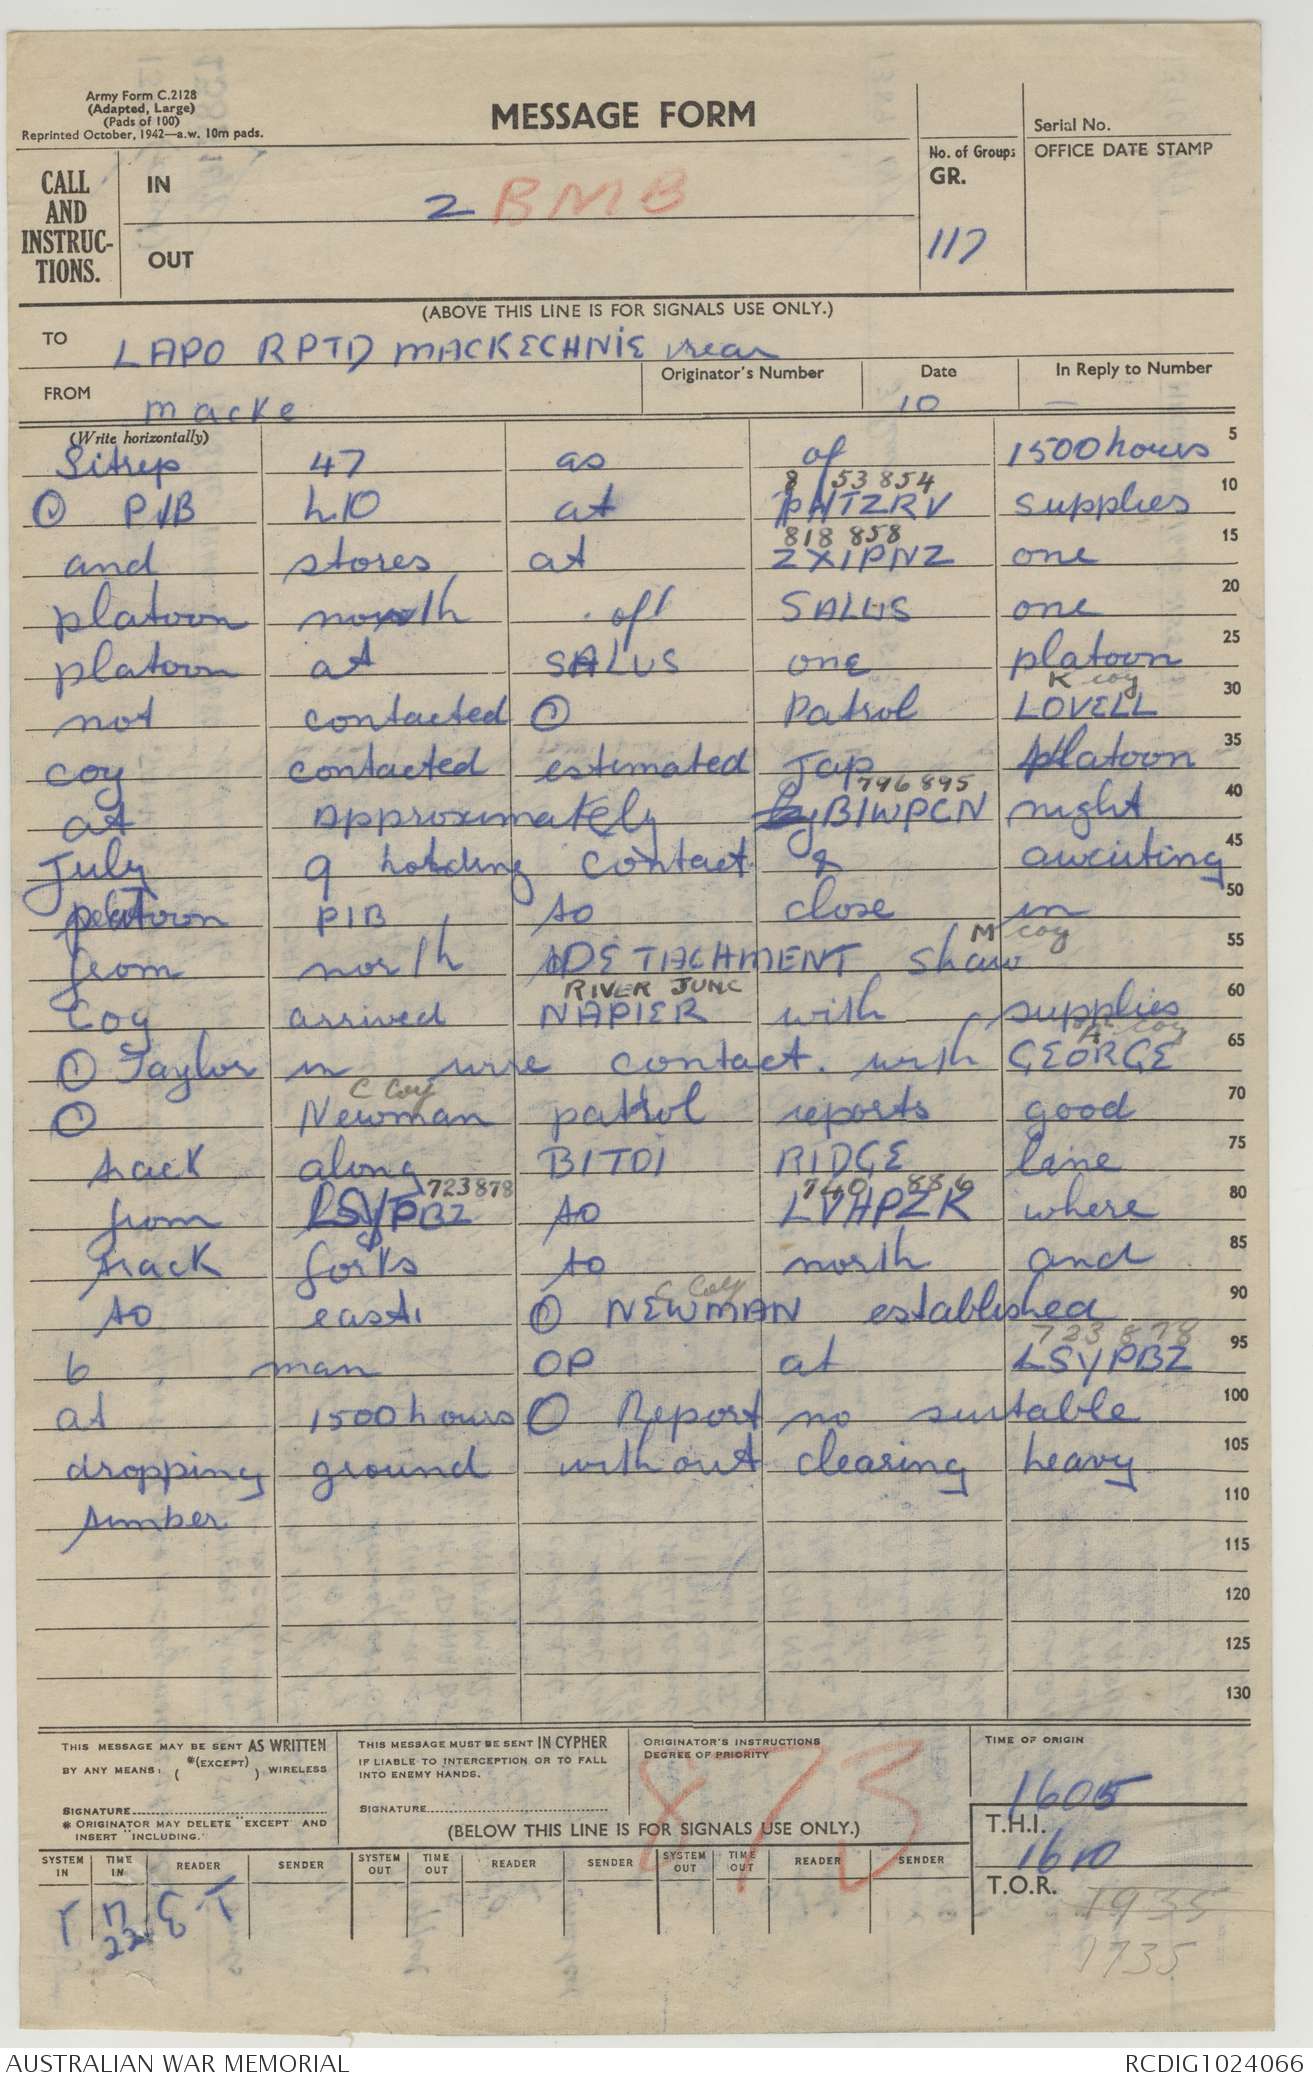 Army Form C.2128
(Adapted, Large)
(Pads of 100)
Reprinted October, 1942—a.w. 10m pads.
MESSAGE FORM
Serial No.
CALL AND INSTRUC-TIONS.
IN
2 BMB
OUT
No. of Groups
GR.
117
OFFICE DATE STAMP
(ABOVE THIS LINE IS FOR SIGNALS USE ONLY.)
TO LAPO RPTD MACKECHNIE rear
FROM macke
Originator's Number
Date 10
In Reply to Number —
(Write horizontally)
Sitrep 47 as of 1500 hours 5
8 53 854
PIB HQ at PHTZRV supplies 10
818 858
and stores at ZXIPNZ one 15
platoon north of SALUS one 20
platoon at SALUS one platoon 25
K coy
not contacted Patrol LOVELL 30
coy contacted estimated Jap platoon 35
796 895
at approximately BIWPCN night 40
July 9 holding contact & awaiting 45
platoon PIB to close in 50
M coy
from north DETACHMENT Shaw 55
RIVER JUNC
Coy arrived NAPIER with supplies 60
A coy
Taylor in wire contact. with GEORGE 65
C Coy
Newman patrol reports good 70
track along BITOI RIDGE line 75
723878 740 886
from LSYPBZ to LVHPZK where 80
track forks to north and 85
C Coy
to east. NEWMAN established 90
723 878
6 man OP at LSYPBZ 95
at 1500 hours Report no suitable 100
dropping ground without clearing heavy 105
timber 110
115
120
125
130
THIS MESSAGE MAY BE SENT AS WRITTEN
BY ANY MEANS: ( *(EXCEPT) ) WIRELESS
SIGNATURE
* ORIGINATOR MAY DELETE "EXCEPT" AND
INSERT "INCLUDING."
THIS MESSAGE MUST BE SENT IN CYPHER
IF LIABLE TO INTERCEPTION OR TO FALL
INTO ENEMY HANDS.
SIGNATURE
ORIGINATOR'S INSTRUCTIONS
DEGREE OF PRIORITY
873
TIME OF ORIGIN
1605
(BELOW THIS LINE IS FOR SIGNALS USE ONLY.)
T.H.I.
1610
SYSTEM IN TIME IN READER SENDER SYSTEM OUT TIME OUT READER SENDER SYSTEM OUT TIME OUT READER SENDER
T.O.R.
1935
1735
AUSTRALIAN WAR MEMORIAL
RCDIG1024066